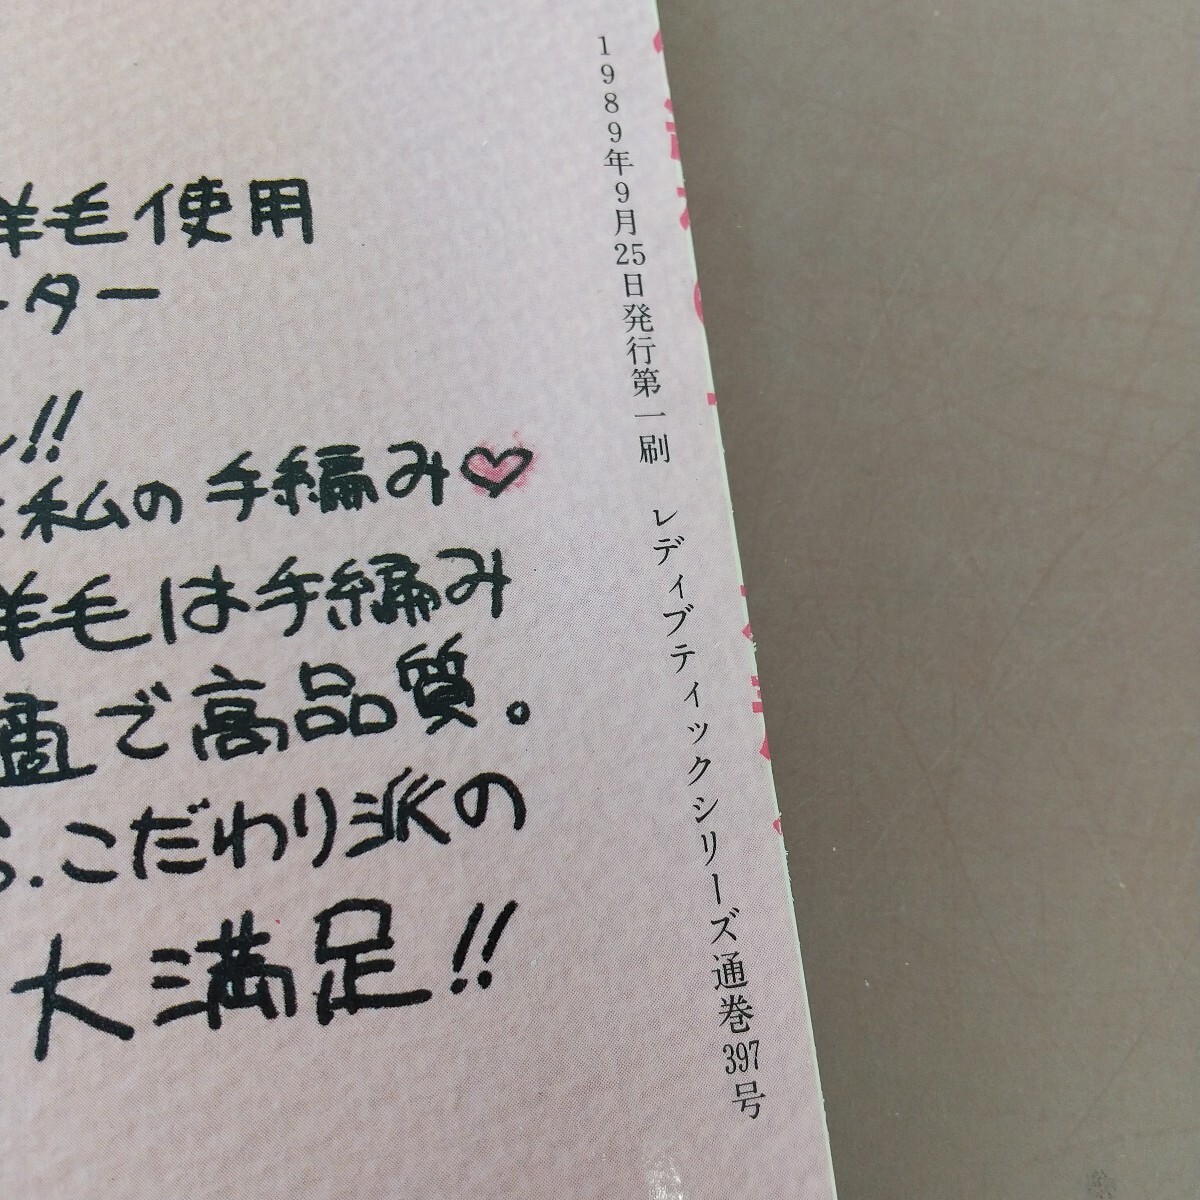 羊毛使用
ーター
!!
私の手編み♡
羊毛は手編み
適で高品質。
こだわり派の
大満足!!
1989年9月25日発行第一刷 レディブティックシリーズ通巻397号